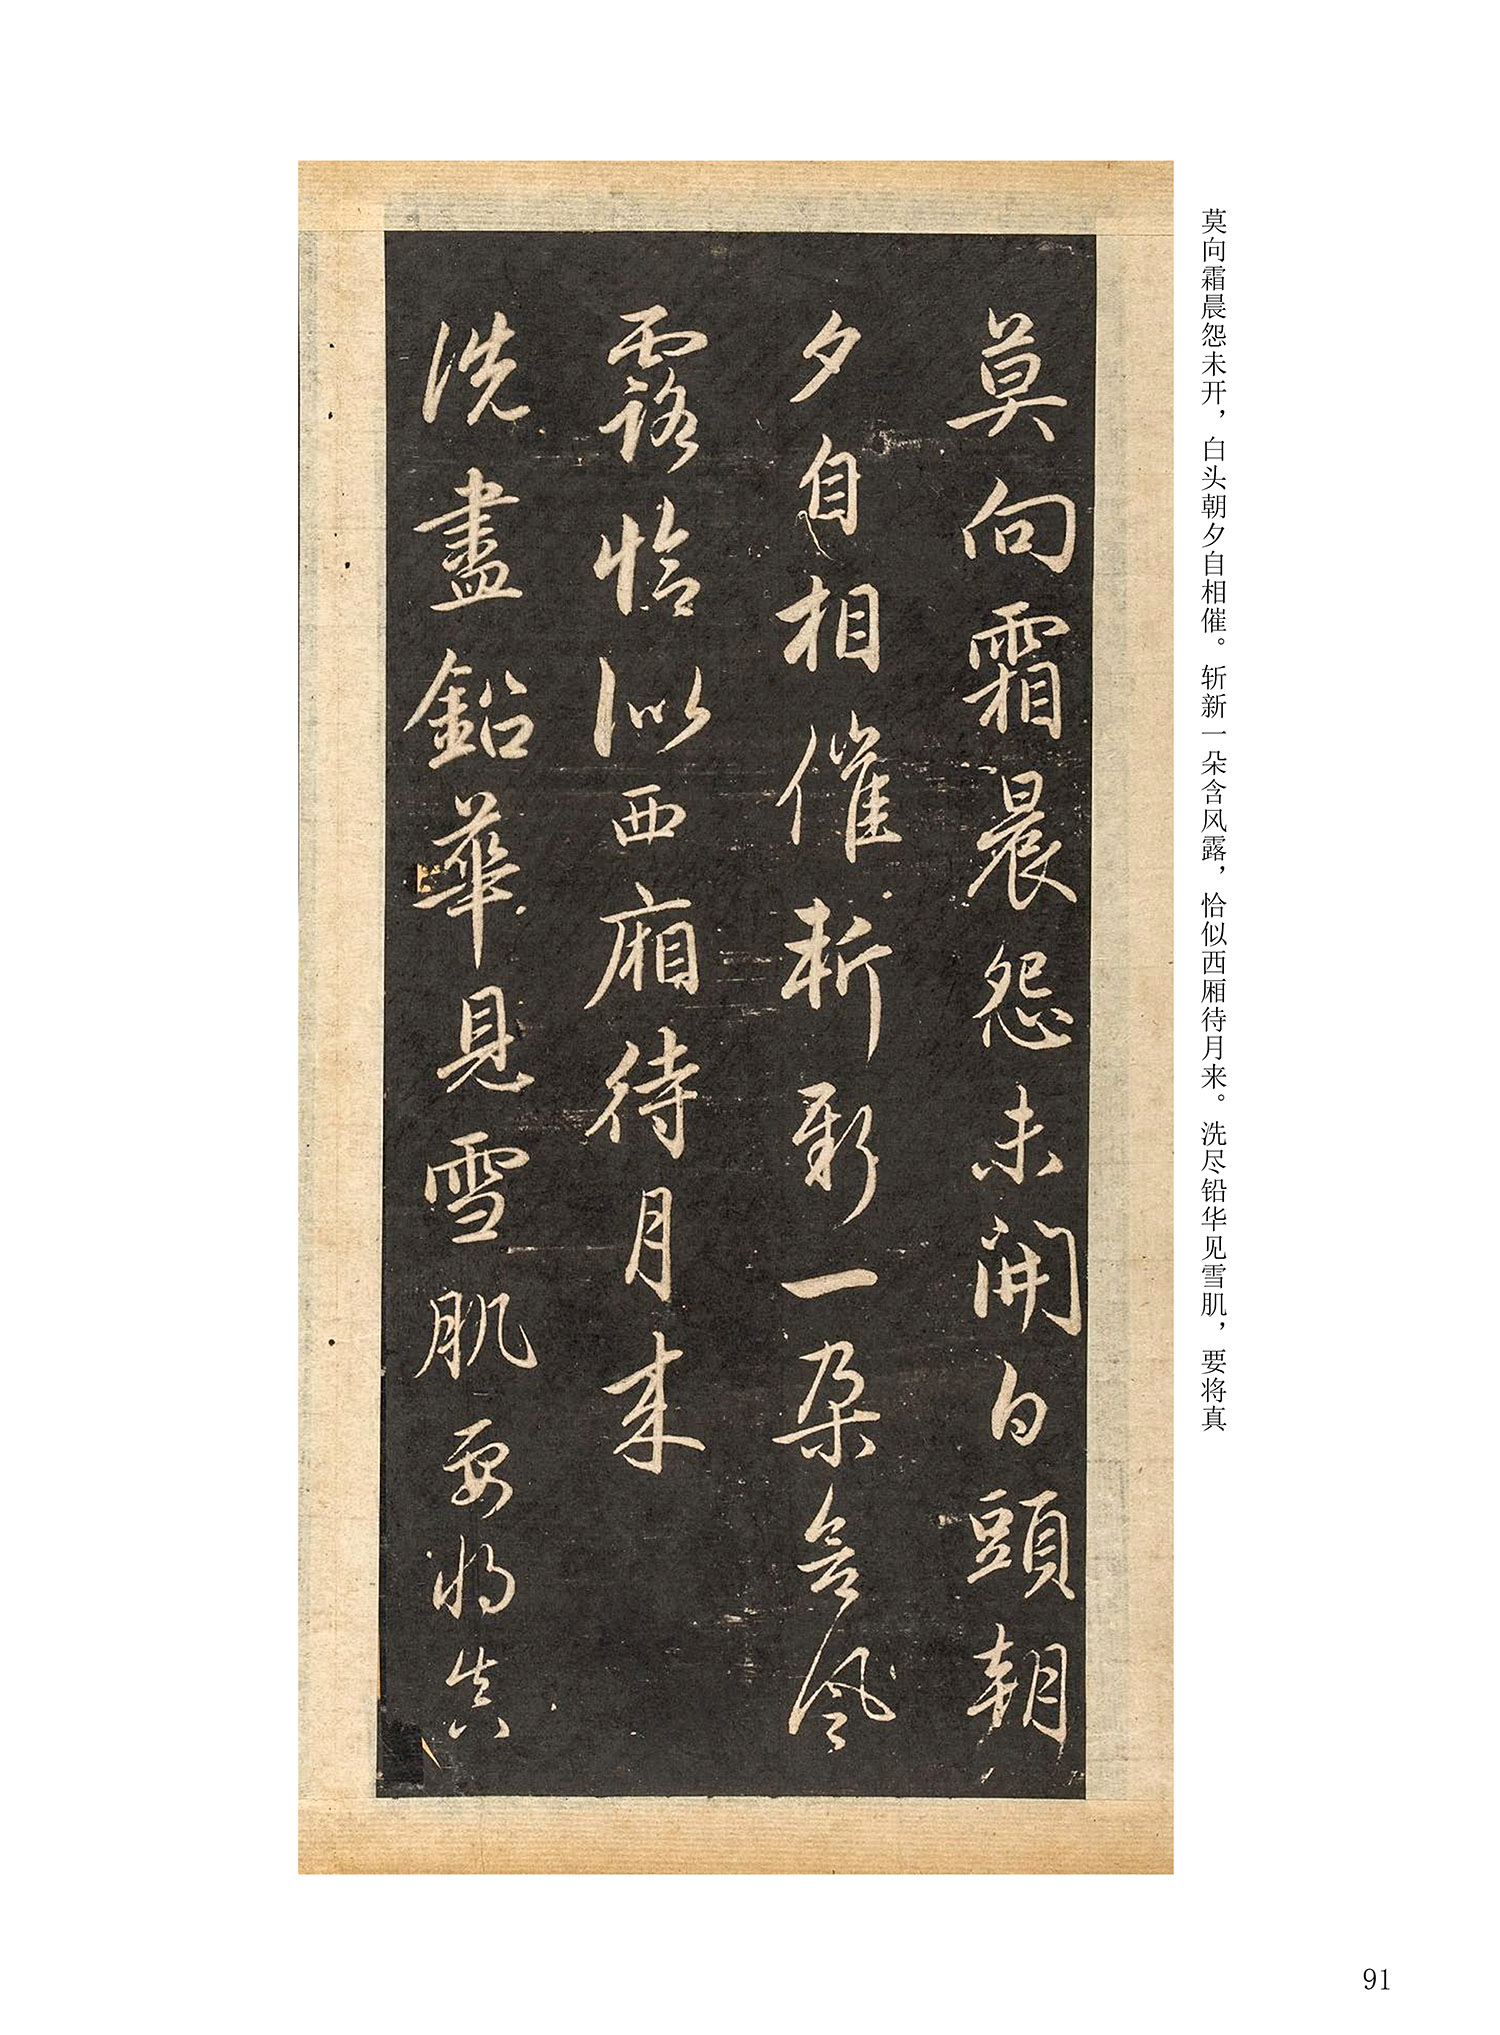 莫向霜晨怨未开，白头朝夕自相催。斩新一朵含风露，恰似西厢待月来。洗尽铅华见雪肌，要将真
莫向霜晨怨未開白頭朝
夕自相催斬新一朵含風
露恰似西廂待月來
洗盡鉛華見雪肌要將真
91